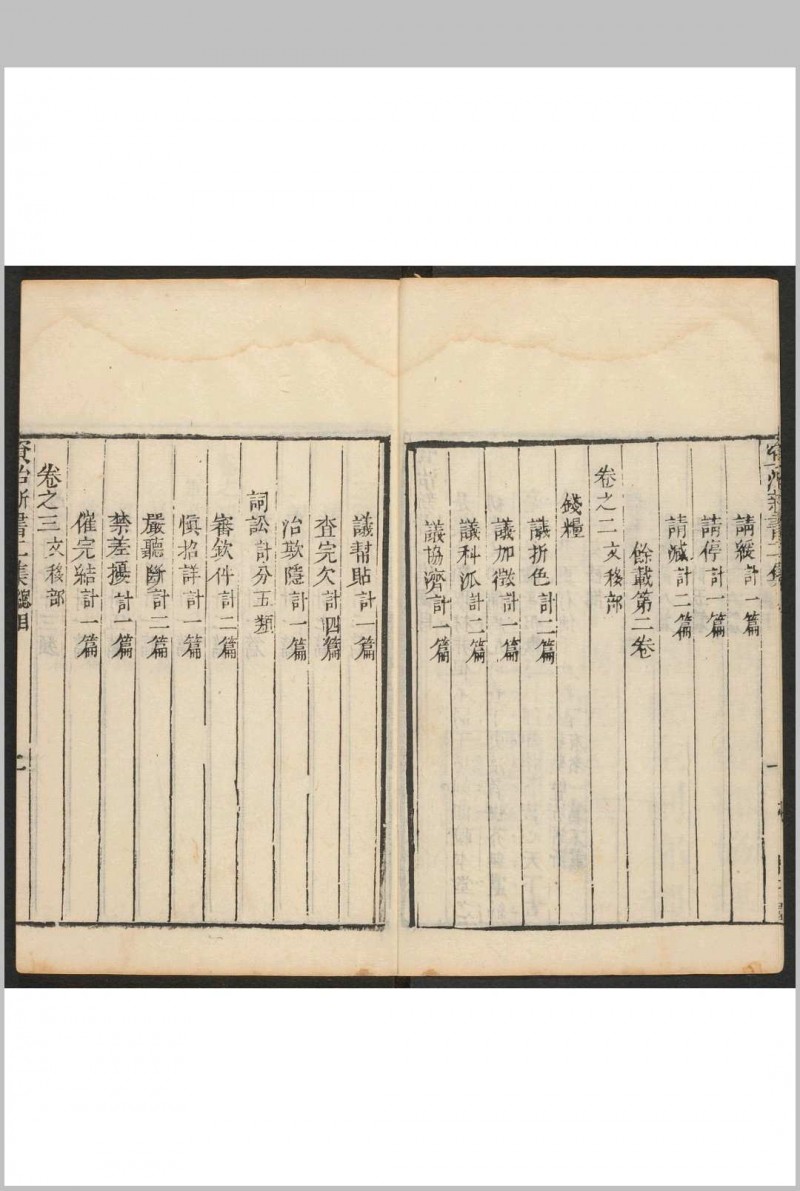 請緩計一篇
請停計一篇
請減計二篇
餘載第二卷
卷之二文移部
錢糧
議折色計二篇
議加徵計一篇
議科派計二篇
議協濟計一篇
議幇貼計一篇
查完欠計四篇
治欺隱計一篇
詞訟計分五類
審欽件計二篇
慎招詳計一篇
嚴聽斷計二篇
禁差擾計一篇
催完結計一篇
卷之三文移部
資治新書二集總目